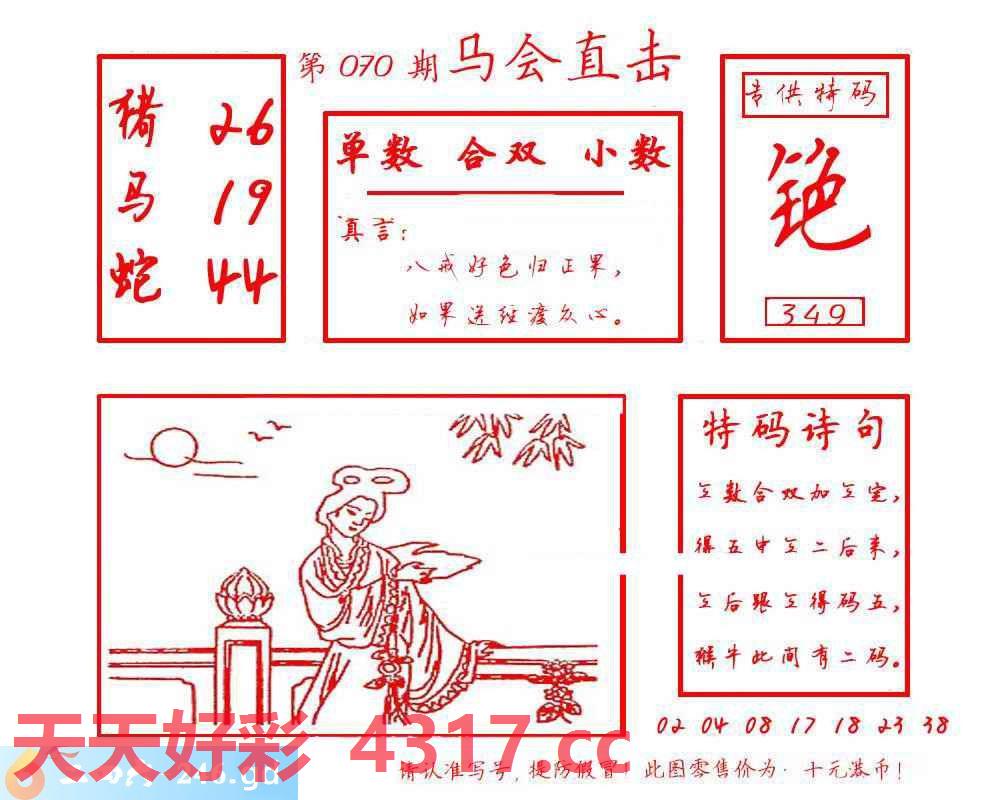 第 070 期 马会直击
猪 26
马 19
蛇 44
单数 合双 小数
真言：
八戒好色归正果，
如果送经渡众心。
专供特码
349
特码诗句
立数合双加立定，
得五中立二后来，
立后跟立得码五，
猴牛此间有二码。
02 04 08 17 18 23 38
天天好彩 4317.cc
246.gd
请认准写号，提防假冒！此图零售价为：十元港币！